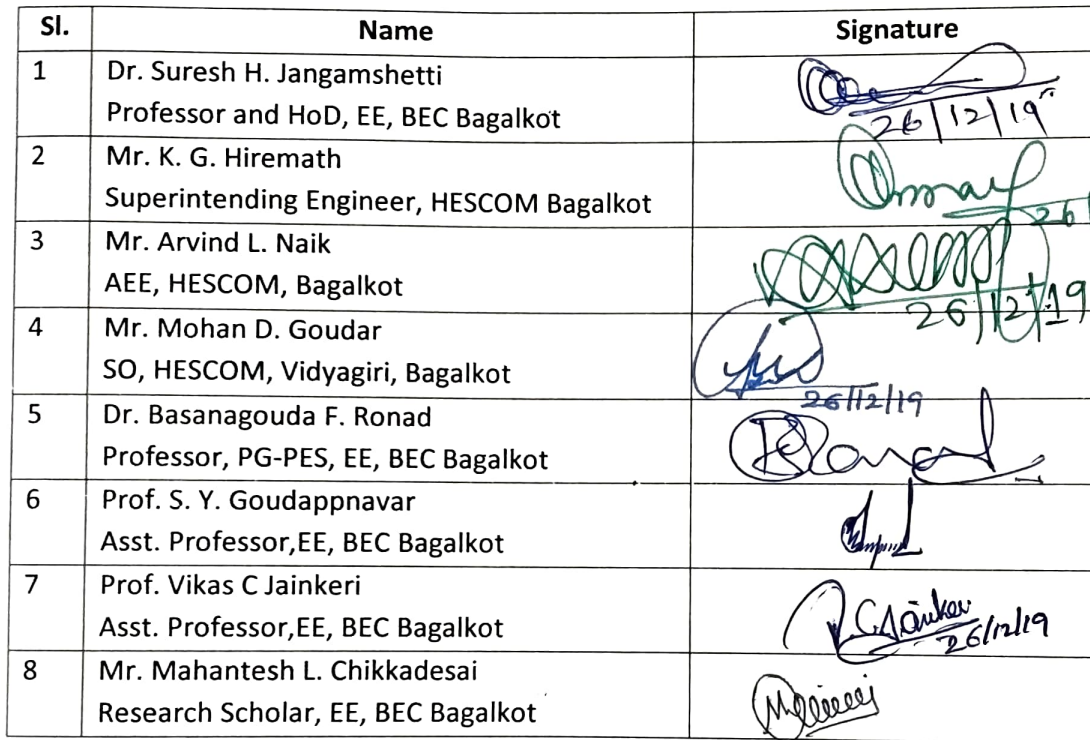 Sl. Name Signature
1 Dr. Suresh H. Jangamshetti
Professor and HoD, EE, BEC Bagalkot
26/12/19
2 Mr. K. G. Hiremath
Superintending Engineer, HESCOM Bagalkot
26
3 Mr. Arvind L. Naik
AEE, HESCOM, Bagalkot
26/12/19
4 Mr. Mohan D. Goudar
SO, HESCOM, Vidyagiri, Bagalkot
26/12/19
5 Dr. Basanagouda F. Ronad
Professor, PG-PES, EE, BEC Bagalkot
6 Prof. S. Y. Goudappnavar
Asst. Professor,EE, BEC Bagalkot
7 Prof. Vikas C Jainkeri
Asst. Professor,EE, BEC Bagalkot
26/12/19
8 Mr. Mahantesh L. Chikkadesai
Research Scholar, EE, BEC Bagalkot